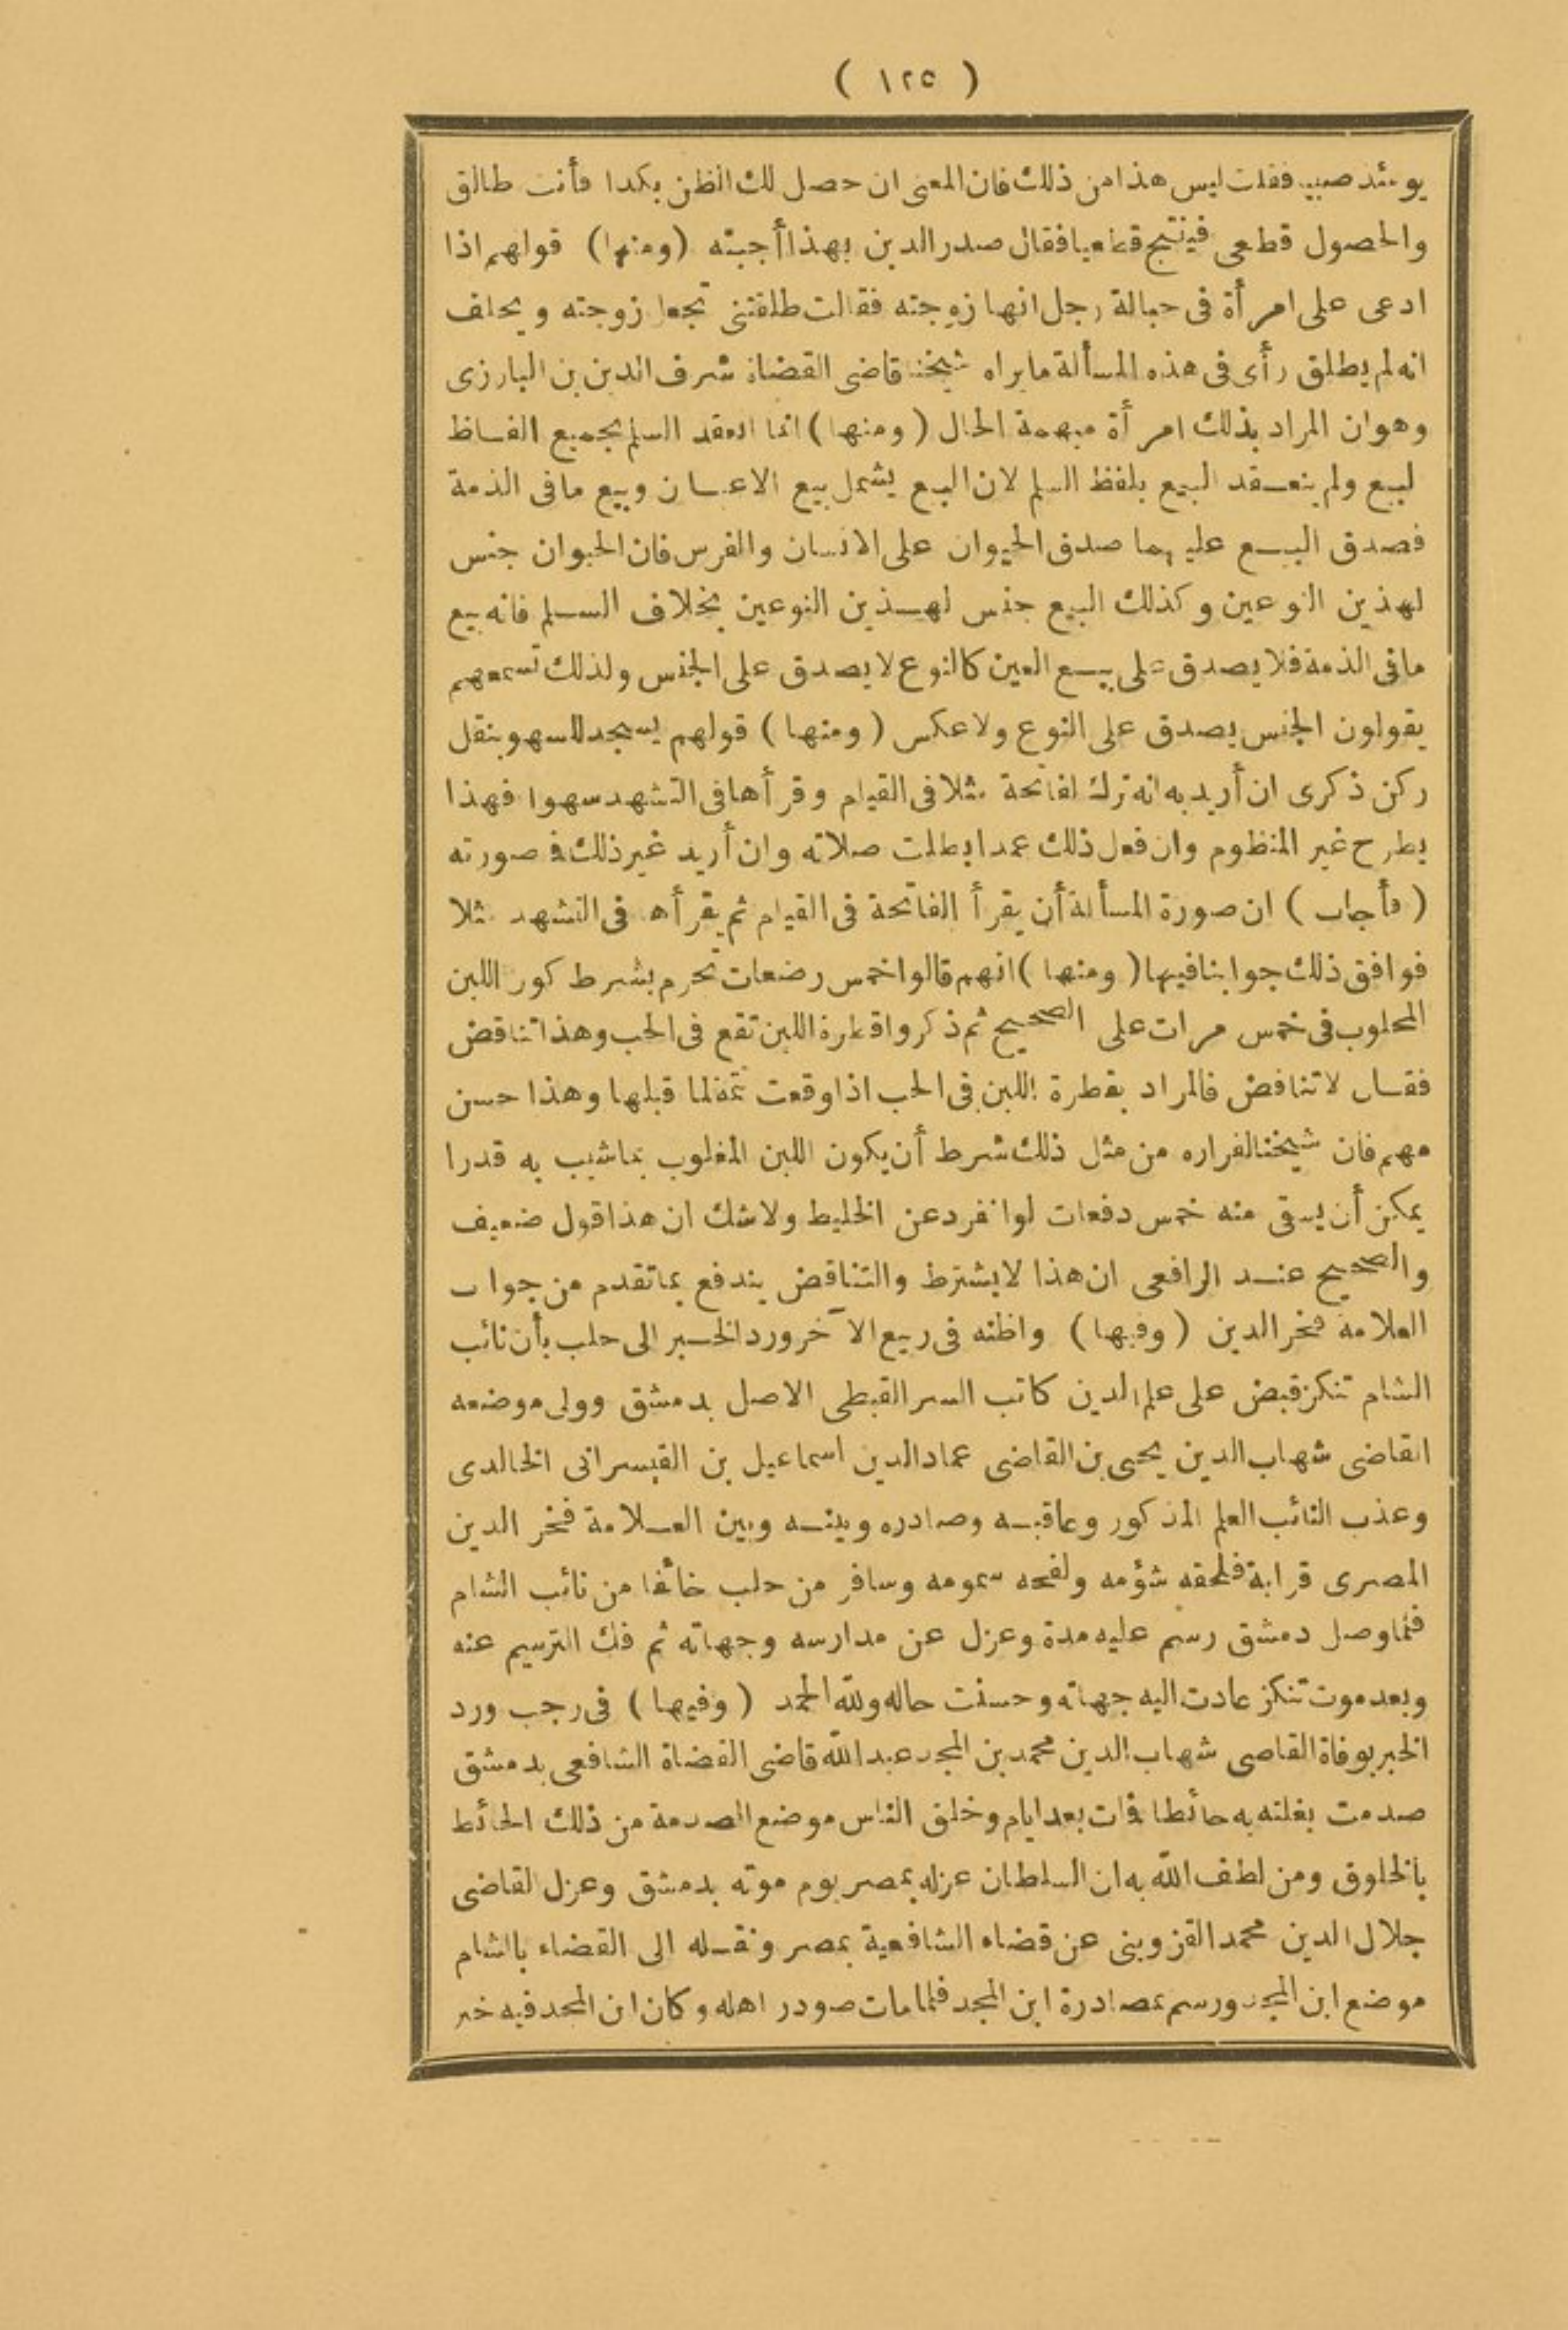 ( ١٢٥ )
يومئذ صبيا فقلت ليس هذا من ذلك فان المعنى ان حصل لك الظن بكذا فأنت طالق
والحصول قطعى فينتج قطعيا فقال صدر الدين بهذا أجبته (ومنها) قولهم اذا
ادعى على امرأة فى حبالة رجل انها زوجته فقالت طلقتنى تجعل زوجته ويحلف
انه لم يطلق رأى فى هذه المسألة ما يراه شيخنا قاضى القضاة شرف الدين بن البارزى
وهو ان المراد بذلك امرأة مبهمة الحال (ومنها) انما انعقد السلم بجميع الفاظ
لبيع ولم ينعقد البيع بلفظ السلم لان البيع يشمل بيع الاعيان وبيع ما فى الذمة
فصدق البيع عليهما صدق الحيوان على الانسان والفرس فان الحيوان جنس
لهذين النوعين وكذلك البيع جنس لهذين النوعين بخلاف السلم فانه بيع
ما فى الذمة فلا يصدق على بيع العين كالنوع لا يصدق على الجنس ولذلك تسمعهم
يقولون الجنس يصدق على النوع ولا عكس (ومنها) قولهم يسجد للسهو بنقل
ركن ذكرى ان أريد به انه ترك لفاتحة مثلا فى القيام وقرأها فى التشهد سهوا فهذا
يطرح غير المنظوم وان فعل ذلك عمدا بطلت صلاته وان أريد غير ذلك فما صورته
(فأجاب) ان صورة المسألة أن يقرأ الفاتحة فى القيام ثم يقرأها فى التشهد مثلا
فوافق ذلك جوابنا فيها (ومنها) انهم قالوا خمس رضعات تحرم بشرط كون اللبن
المحلوب فى خمس مرات على الصحيح ثم ذكروا قطرة اللبن تقع فى الحب وهذا تناقض
فقال لا تناقض فالمراد بقطرة اللبن فى الحب اذا وقعت تتمة لما قبلها وهذا حسن
مهم فان شيخنا لفراره من مثل ذلك شرط أن يكون اللبن المغلوب بما شيب به قدرا
يمكن أن يسقى منه خمس دفعات لو انفرد عن الخليط ولا شك ان هذا قول ضعيف
والصحيح عند الرافعى ان هذا لا يشترط والتناقض يندفع بما تقدم من جواب
العلامة فخر الدين (وفيها) واظنه فى ربيع الآخر ورد الخبر الى حلب بأن نائب
الشام تنكز قبض على علم الدين كاتب السر القبطى الاصل بدمشق وولى موضعه
القاضى شهاب الدين يحيى بن القاضى عماد الدين اسماعيل بن القيسرانى الخالدى
وعذب النائب العلم المذكور وعاقبه وصادره وبينه وبين العلامة فخر الدين
المصرى قرابة فلحقه شؤمه ولفحه سمومه وسافر من حلب خائفا من نائب الشام
فلما وصل دمشق رسم عليه مدة وعزل عن مدارسه وجهاته ثم فك الترسيم عنه
وبعد موت تنكز عادت اليه جهاته وحسنت حاله ولله الحمد (وفيها) فى رجب ورد
الخبر بوفاة القاصى شهاب الدين محمد بن المجد عبد الله قاضى القضاة الشافعى بدمشق
صدمت بغلته به حائطا فمات بعد ايام وخلق الناس موضع الصدمة من ذلك الحائط
بالخلوق ومن لطف الله به ان السلطان عزله بمصر يوم موته بدمشق وعزل القاضى
جلال الدين محمد القزوينى عن قضاء الشافعية بمصر ونقله الى القضاء بالشام
موضع ابن المجد ورسم بمصادرة ابن المجد فلما مات صودر اهله وكان ابن المجد فيه خير